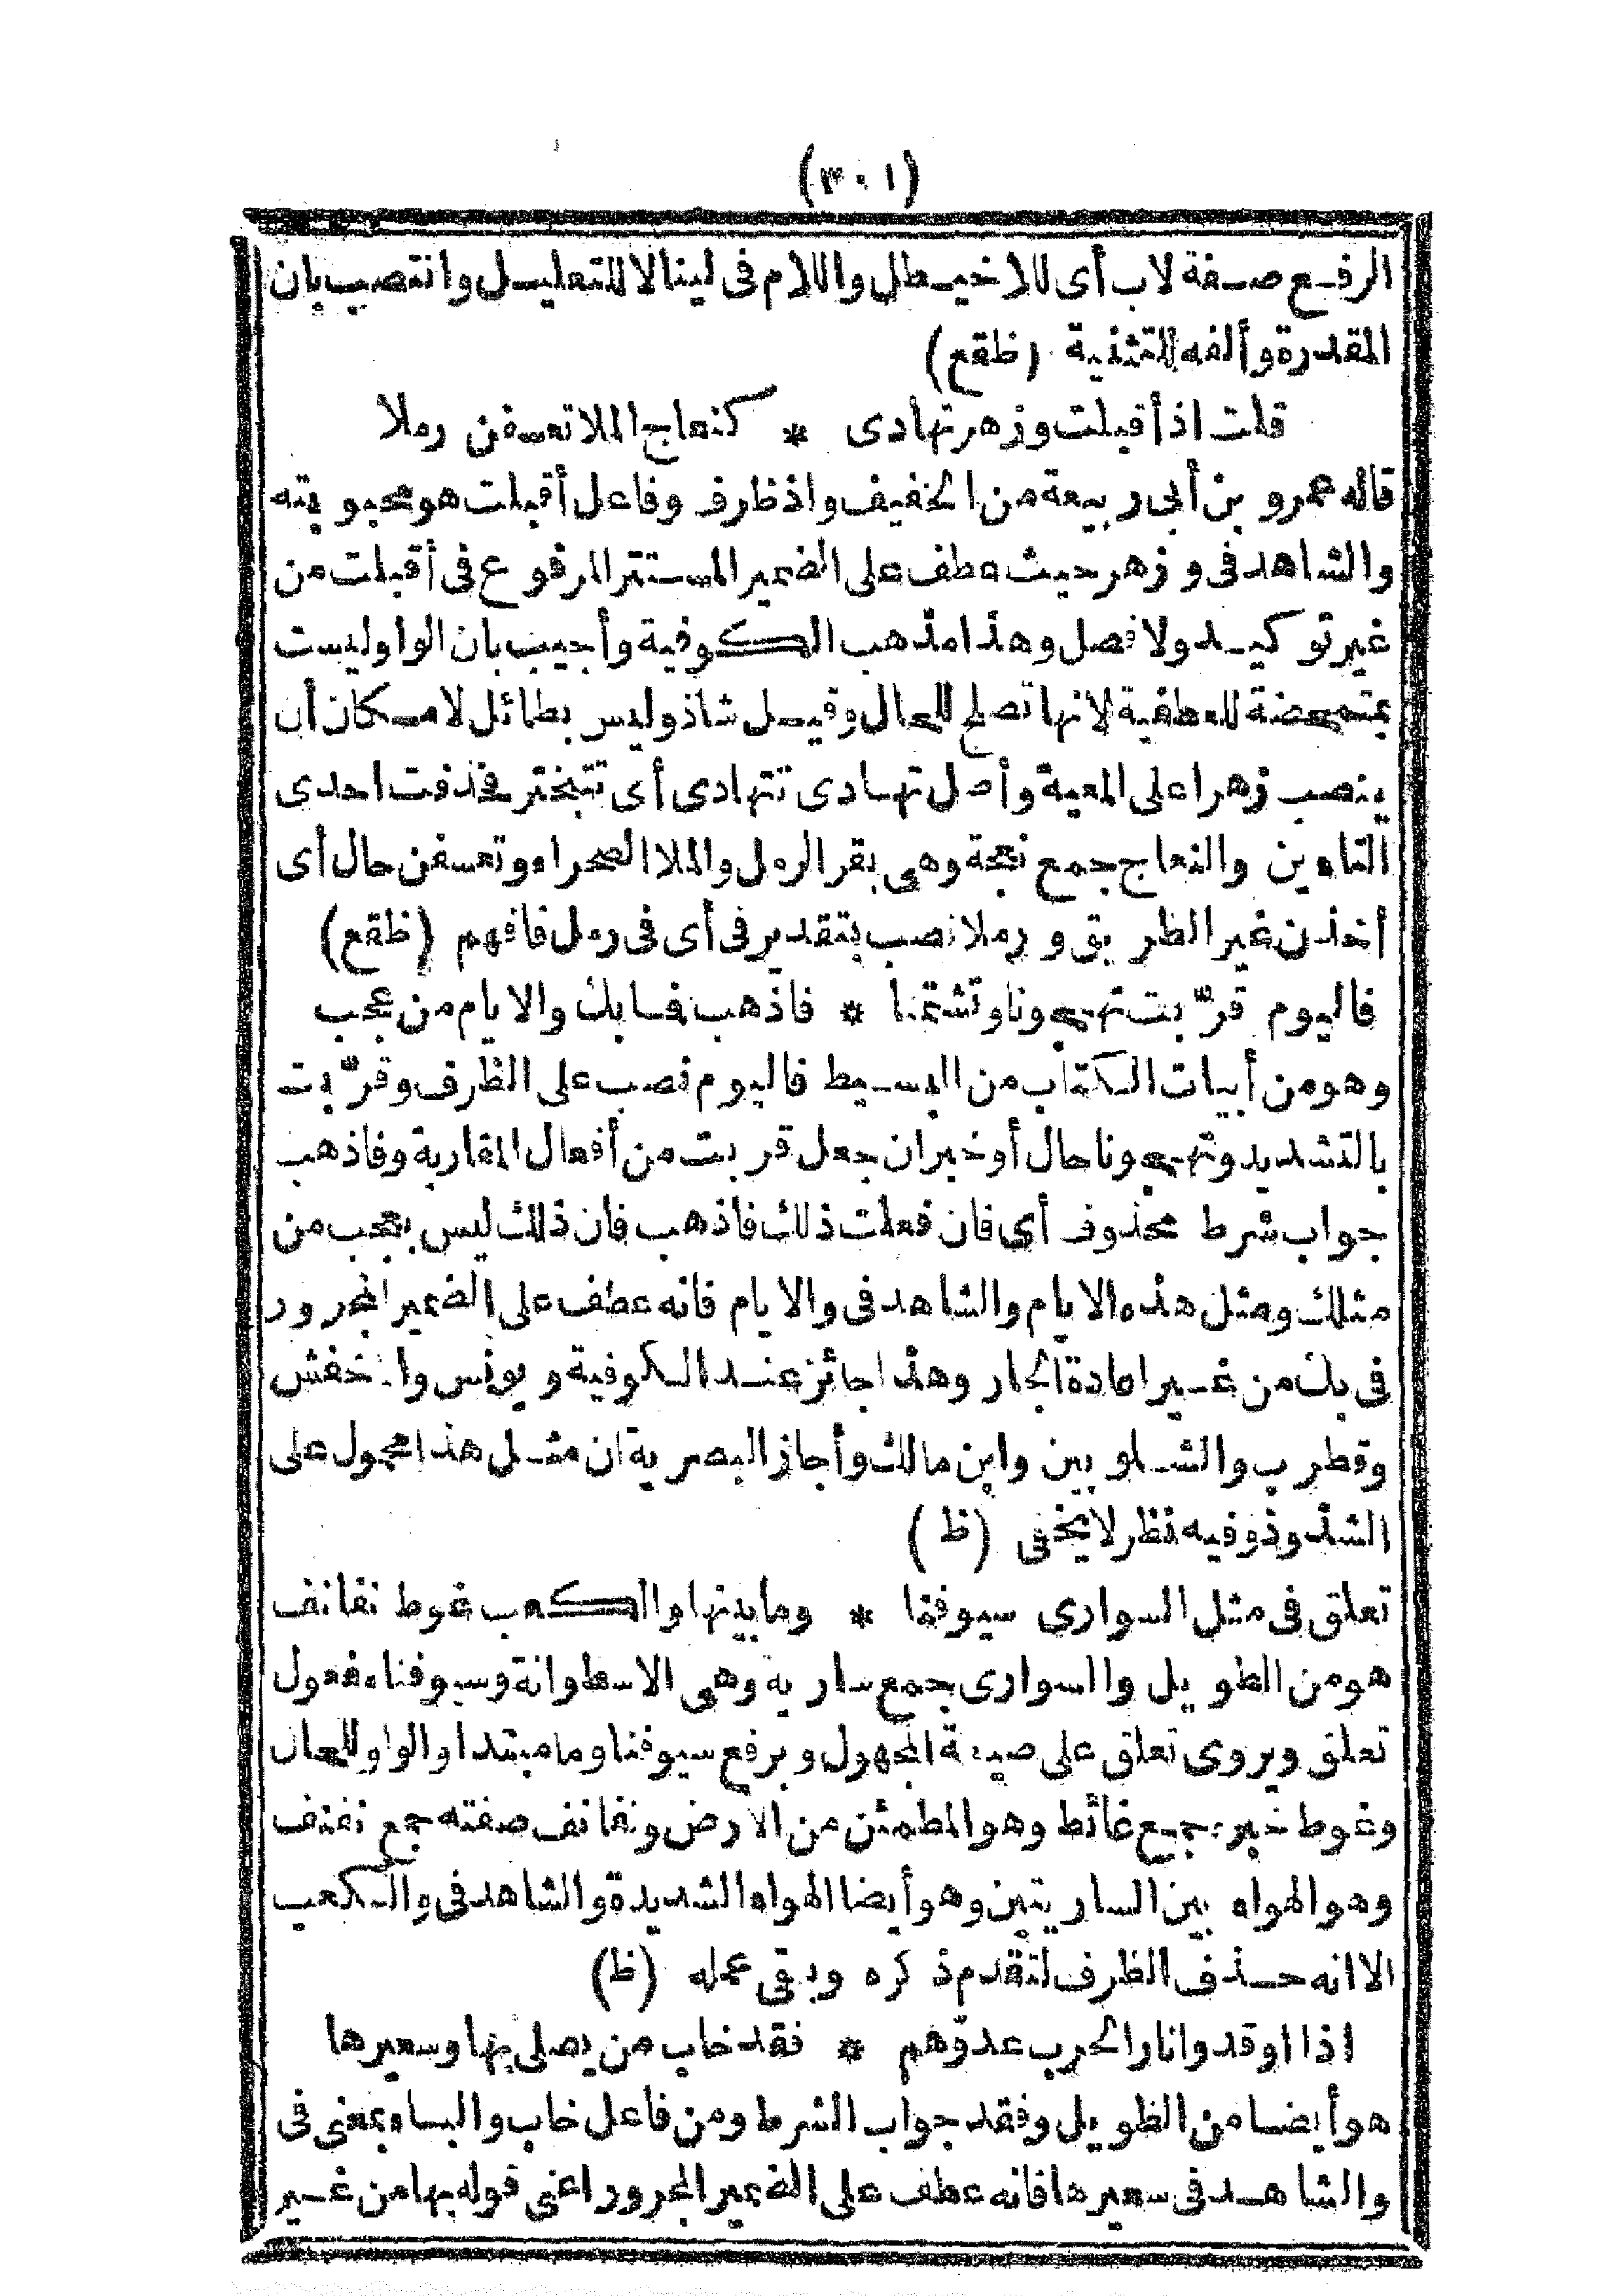 (٣٠١)
الرفع صفة لاب أى للاخيطل واللام فى لينالا للتعليل وانتصب بان
المقدرة وألفه للتثنية (ظقع)
قلت اذ أقبلت وزهر تهادى * كنعاج الملا تعسفن رملا
قاله عمرو بن أبى ربيعة من الخفيف واذ ظرف وفاعل أقبلت هو محبوبته
والشاهد فى وزهر حيث عطف على الضمير المستتر المرفوع فى أقبلت من
غير توكيد ولا فصل وهذا مذهب الكوفية وأجيب بان الواو ليست
بمتمحضة للعطفية لانها تصلح للحال وقيل شاذ وليس بطائل لامكان أن
ينصب زهرا على المعية وأصل تهادى تتهادى أى تتبختر فحذفت احدى
التاءين والنعاج جمع نعجة وهى بقر الرمل والملا الصحراء وتعسفن حال أى
أخذن غير الطريق ورملا نصب بتقدير فى أى فى رمل فافهم (ظقع)
فاليوم قرّبت تهجونا وتشتمنا * فاذهب فما بك والايام من عجب
وهو من أبيات الكتاب من البسيط فاليوم نصب على الظرف وقرّبت
بالتشديد وتهجونا حال أو خبر ان جعل قربت من أفعال المقاربة وفاذهب
جواب شرط محذوف أى فان فعلت ذلك فاذهب فان ذلك ليس بعجب من
مثلك ومثل هذه الايام والشاهد فى والايام فانه عطف على الضمير المجرور
فى بك من غير اعادة الجار وهذا جائز عند الكوفية ويونس والاخفش
وقطرب والشلوبين وابن مالك وأجاز البصرية ان مثل هذا محمول على
الشذوذ وفيه نظر لا يخفى (ظ)
تعلق فى مثل السوارى سيوفنا * وما بينها والكعب غوط نفانف
هو من الطويل والسوارى جمع سارية وهى الاسطوانة وسيوفنا مفعول
تعلق ويروى تعلق على صيغة المجهول وبرفع سيوفنا وما مبتدا والواو للحال
وغوط خبره جمع غائط وهو المطمئن من الارض ونفانف صفته جمع نفنف
وهو الهواء بين الساريتين وهو أيضا الهواء الشديدة والشاهد فى والكعب
الا انه حذف الظرف لتقدم ذكره وبقى عمله (ظ)
اذا اوقدوا نار الحرب عدوّهم * فقد خاب من يصلى بها وسعيرها
هو أيضا من الطويل وفقد جواب الشرط ومن فاعل خاب والباء بمعنى فى
والشاهد فى سعيرها فانه عطف على الضمير المجرور اعنى قوله بها من غير